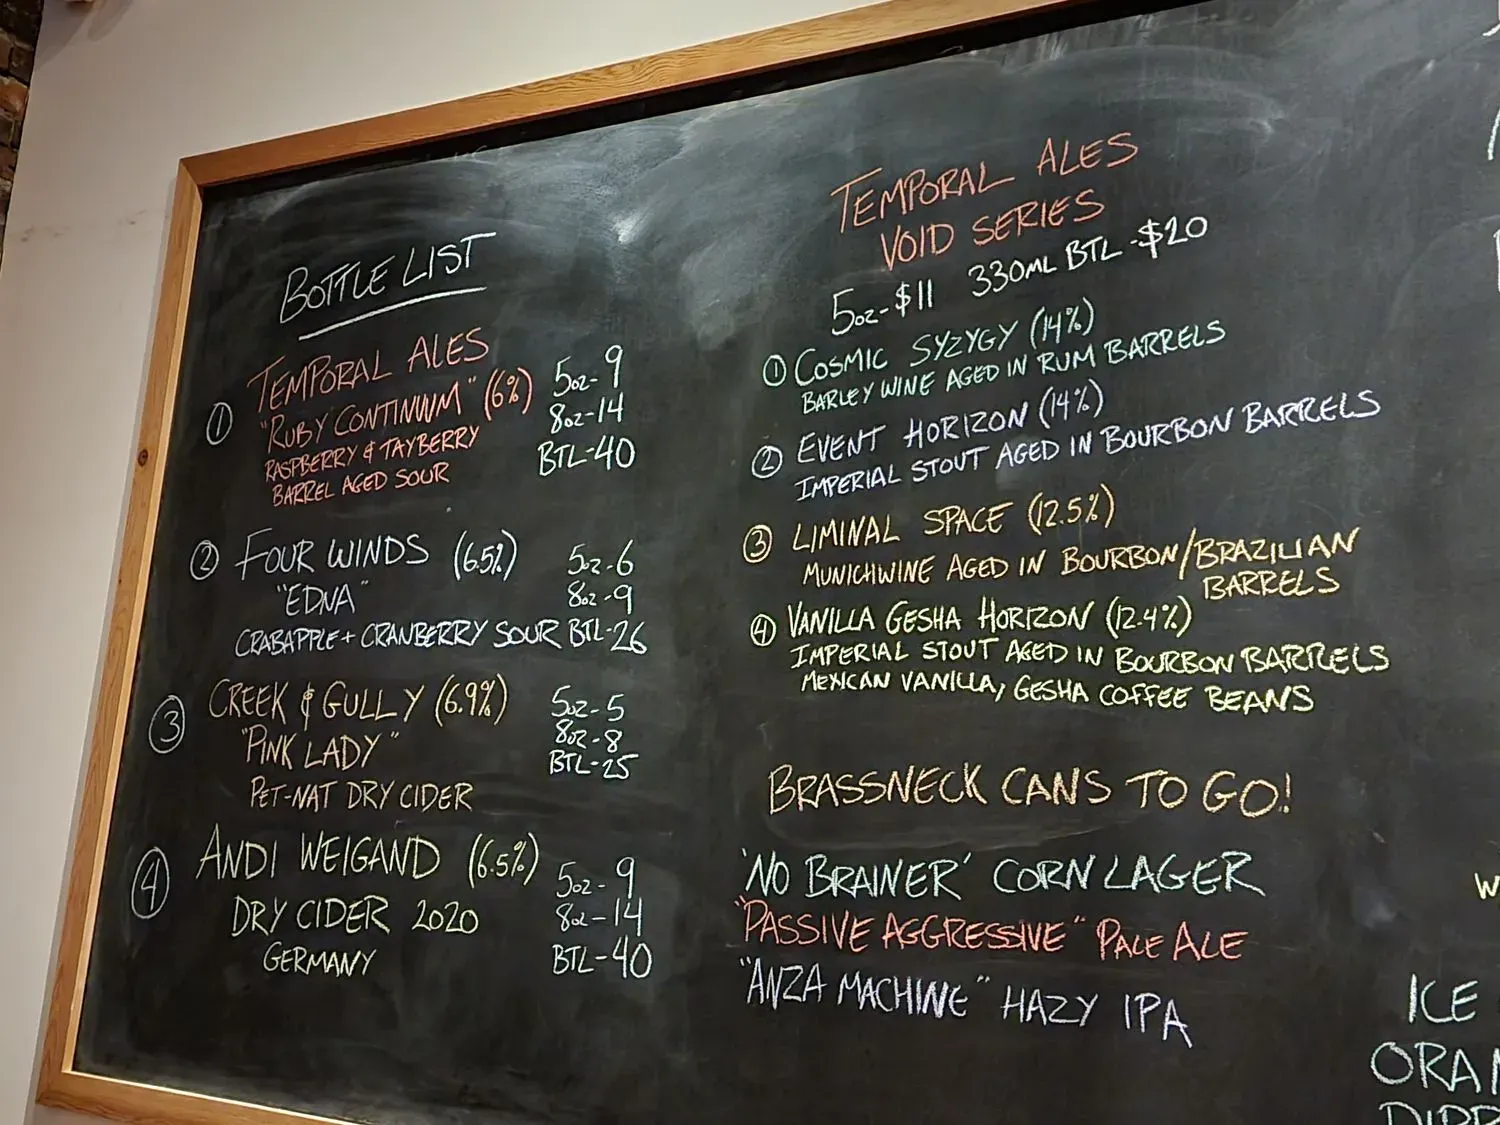 BOTTLE LIST
① TEMPORAL ALES
"RUBY CONTINUUM" (6%)
RASPBERRY & TAYBERRY
BARREL AGED SOUR
5oz-9
8oz-14
BTL-40
② FOUR WINDS (6.5%)
"EDNA"
CRABAPPLE + CRANBERRY SOUR
5oz-6
8oz-9
BTL-26
③ CREEK & GULLY (6.9%)
"PINK LADY"
PET-NAT DRY CIDER
5oz-5
8oz-8
BTL-25
④ ANDI WEIGAND (6.5%)
DRY CIDER 2020
GERMANY
5oz-9
8oz-14
BTL-40
TEMPORAL ALES
VOID SERIES
5oz-$11 330ML BTL-$20
① COSMIC SYZYGY (14%)
BARLEY WINE AGED IN RUM BARRELS
② EVENT HORIZON (14%)
IMPERIAL STOUT AGED IN BOURBON BARRELS
③ LIMINAL SPACE (12.5%)
MUNICHWINE AGED IN BOURBON/BRAZILIAN
BARRELS
④ VANILLA GESHA HORIZON (12.4%)
IMPERIAL STOUT AGED IN BOURBON BARRELS
MEXICAN VANILLA, GESHA COFFEE BEANS
BRASSNECK CANS TO GO!
'NO BRAINER' CORN LAGER
"PASSIVE AGGRESSIVE" PALE ALE
"ANZA MACHINE" HAZY IPA
ICE